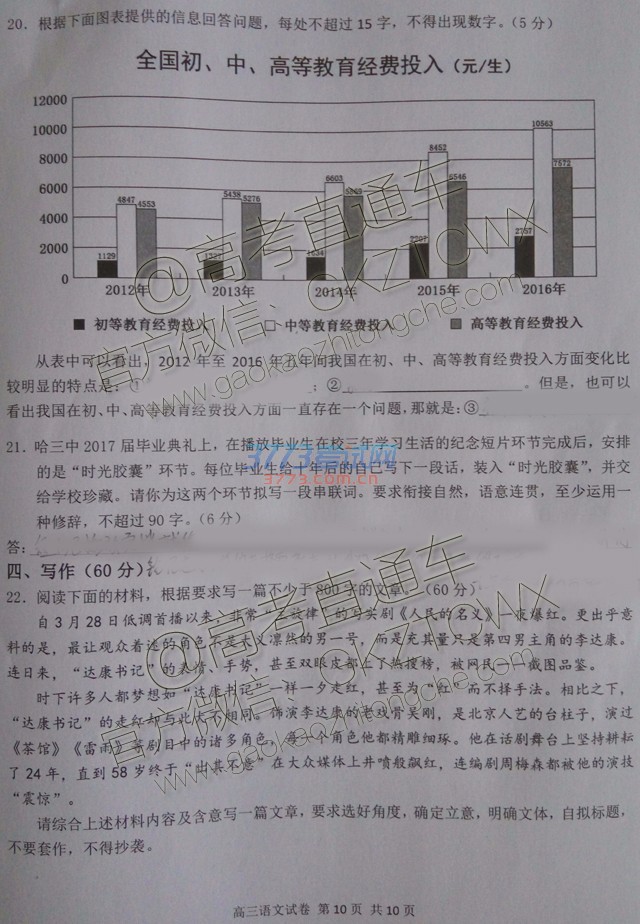 20. 根据下面图表提供的信息回答问题，每处不超过 15 字，不得出现数字。（5 分）
全国初、中、高等教育经费投入（元/生）
12000
10000
8000
6000
4000
2000
0
1129 4847 4553
5438 5276
6603
8452 6546
2757 10563 7572
2012年 2013年 2014年 2015年 2016年
初等教育经费投入 中等教育经费投入 高等教育经费投入
从表中可以看出，2012 年至 2016 年五年间我国在初、中、高等教育经费投入方面变化比
较明显的特点是：① ；② 。但是，也可以
看出我国在初、中、高等教育经费投入方面一直存在一个问题，那就是：③
21. 哈三中 2017 届毕业典礼上，在播放毕业生在校三年学习生活的纪念短片环节完成后，安排
的是“时光胶囊”环节。每位毕业生给十年后的自己写下一段话，装入“时光胶囊”，并交
给学校珍藏。请你为这两个环节拟写一段串联词。要求衔接自然，语意连贯，至少运用一
种修辞，不超过 90 字。（6 分）
答：
四、写作（60 分）
22. 阅读下面的材料，根据要求写一篇不少于 800 字的文章。（60 分）
自 3 月 28 日低调首播以来，非常“主旋律”的写实剧《人民的名义》一夜爆红。更出乎意
料的是，最让观众着迷的角色不是大义凛然的男一号，而是充其量只是第四男主角的李达康。
连日来，“达康书记”的表情、手势，甚至双眼皮都上了热搜榜，被网民一一截图品鉴。
时下许多人都梦想如“达康书记”一样一夕走红，甚至为“红”而不择手法。相比之下，
“达康书记”的走红却与此大不相同。饰演李达康的老戏骨吴刚，是北京人艺的台柱子，演过
《茶馆》《雷雨》等剧目中的诸多角色，每一个角色他都精雕细琢。他在话剧舞台上坚持耕耘
了 24 年，直到 58 岁终于“出其不意”在大众媒体上井喷般飙红，连编剧周梅森都被他的演技
“震惊”。
请综合上述材料内容及含意写一篇文章，要求选好角度，确定立意，明确文体，自拟标题，
不要套作，不得抄袭。
高三语文试卷 第 10 页 共 10 页
@高考直通车
官方微信：GKZTCWX
www.gaokaozhitongche.com
3773考试网
3773.com.cn
@高考直通车
官方微信：GKZTCWX
www.gaokaozhitongche.com